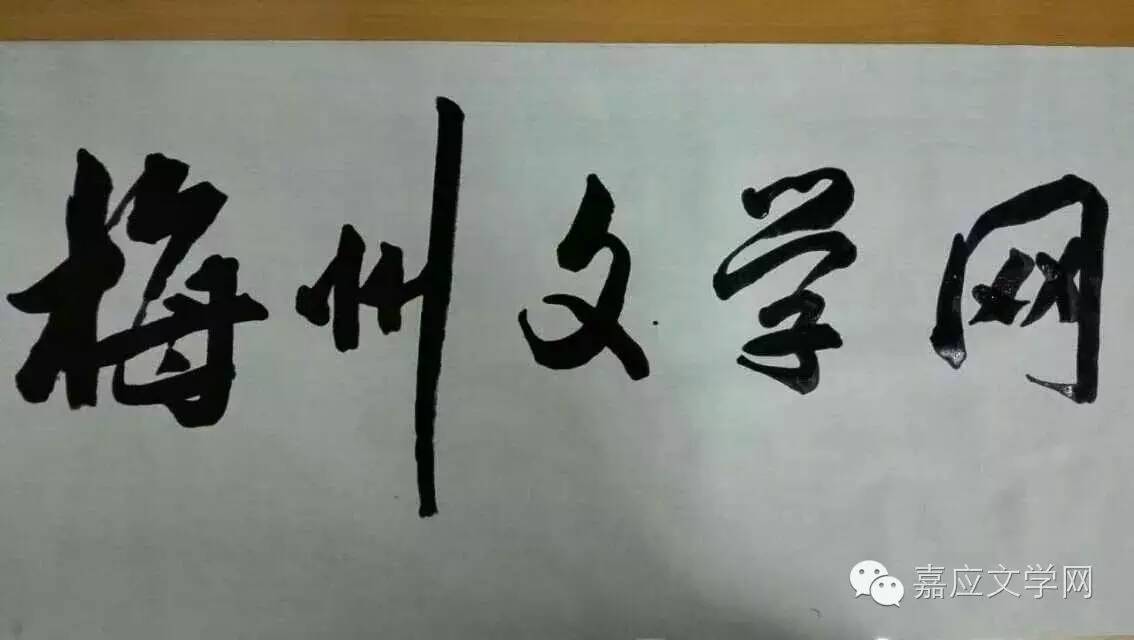 梅州文学网
嘉应文学网